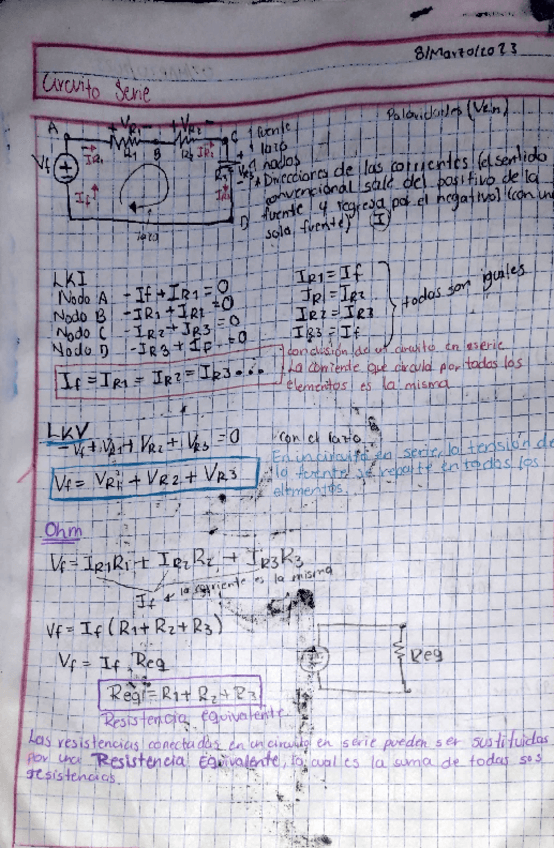 8/Marzo/2023
Circuito Serie
Polaridades (Vein)
A + VR1 - + VR2 - C
R1 B R2 IR2
Vf IR1
If
lazo
D
1 fuente
1 lazo
4 nodos
* Direcciones de las corrientes (el sentido
convencional sale del positivo de la
fuente y regresa por el negativo) (con una
sola fuente) (I)
LKI
Nodo A -If + IR1 = 0
Nodo B -IR1 + IR2 = 0
Nodo C -IR2 + IR3 = 0
Nodo D -IR3 + IF = 0
IR1 = If
IR1 = IR2
IR2 = IR3
IR3 = If
todas son iguales
If = IR1 = IR2 = IR3 ∴
Conclusión de un circuito en serie
La corriente que circula por todos los
elementos es la misma
LKV
-Vf + VR1 + VR2 + VR3 = 0 con el lazo
Vf = VR1 + VR2 + VR3
En un circuito en serie, la tensión de
la fuente se reparte en todos los
elementos.
Ohm
Vf = IR1R1 + IR2R2 + IR3R3
If la corriente es la misma
Vf = If (R1 + R2 + R3)
Vf = If Req
Req = R1 + R2 + R3
Resistencia equivalente
Req
Las resistencias conectadas en un circuito en serie pueden ser sustituidas
por una Resistencia Equivalente, la cual es la suma de todas sus
resistencias.